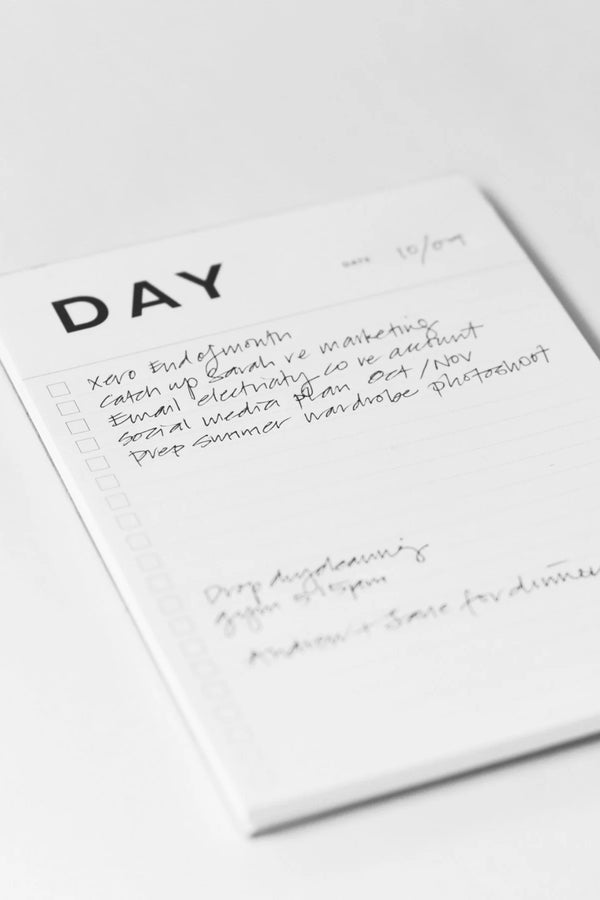 DAY
DATE 10/09
Xero End of month
catch up Sarah re marketing
Email electricity co re account
social media plan Oct/Nov
prep summer wardrobe photoshoot
Drop drycleaning
gym 5:15pm
Andrew + Jane for dinner